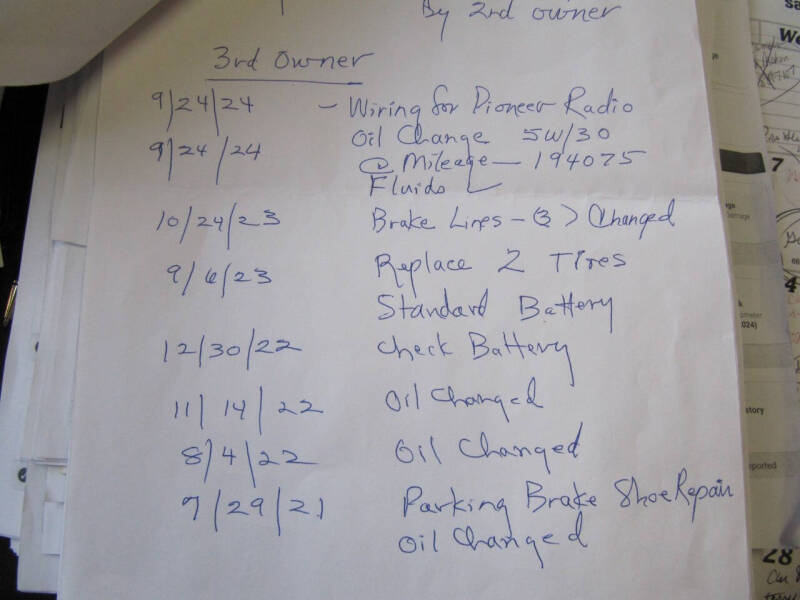 By 2nd owner
3rd Owner
9/24/24 - Wiring for Pioneer Radio
9/24/24 Oil Change 5W/30
@ Mileage - 194075
Fluids ✓
10/24/23 Brake Lines - 3 > Changed
9/6/23 Replace 2 Tires
Standard Battery
12/30/22 Check Battery
11/14/22 Oil Changed
8/4/22 Oil Changed
7/29/21 Parking Brake Shoe Repair
Oil Changed
sa
We
7
4
2024)
story
eported
28